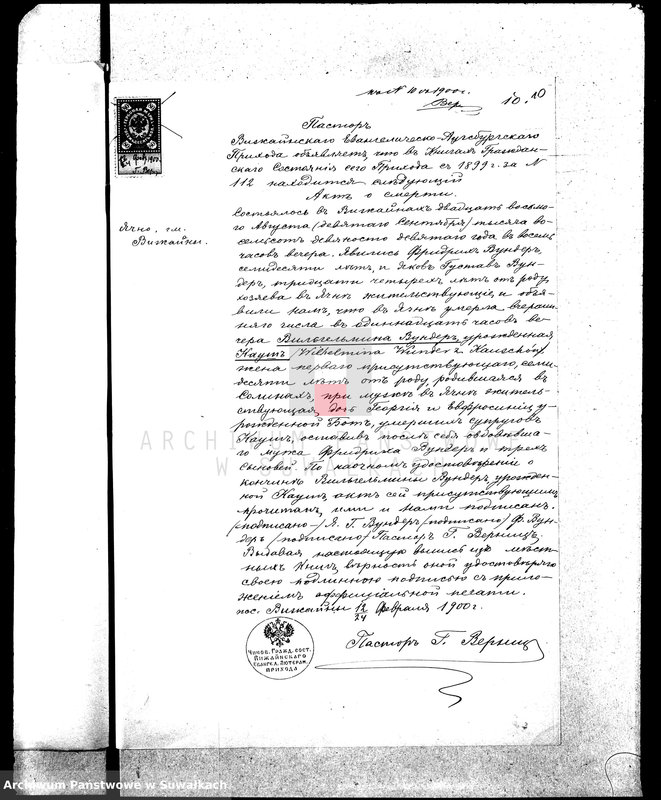 10.10
Пасторъ
Вижайнскаго Евангелическо-Аугсбургскаго
Прихода объявляетъ, что въ Книгахъ Граждан-
скаго Состоянія сего Прихода съ 1899 г. за N
112 находится слѣдующій
Актъ о смерти.
Ячно, гм.
Вижайны.
Состоялось въ Вижайнахъ двадцать восьма-
го Августа (девятаго Сентября) тысяча во-
семьсотъ девяносто девятаго года въ восемь
часовъ вечера. Явились Фридрихъ Вундеръ,
семидесяти лѣтъ, и Яковъ Густавъ Вун-
деръ, тридцати четырехъ лѣтъ отъ роду,
хозяева въ Ячнѣ жительствующіе, и объя-
вили намъ, что въ Ячнѣ умерла вчераш-
няго числа въ одиннадцать часовъ ве-
чера Вильгельмина Вундеръ, урожденная
Каушъ /Wilhelmina Wunder z Kauschów/
жена перваго присутствующаго, семи-
десяти лѣтъ отъ роду, родившаяся въ
при мужѣ въ Ячнѣ житель-
ствующая, дочь Георгія и Евфросиніи, у-
рожденной умершихъ супруговъ
Каушъ, оставивъ послѣ себя овдовѣвша-
го мужа Фридриха Вундеръ и трехъ
сыновей. По наочномъ удостовѣреніи о
кончинѣ Вильгельмины Вундеръ, урожден-
ной Каушъ, актъ сей присутствующимъ
прочитанъ, ими и нами подписанъ.
/подписано/ Я. Г. Вундеръ /подписано/ Ф. Вун-
деръ /подписано/ Пасторъ Г. Верницъ.
Выдавая настоящую выпись изъ мѣст-
ныхъ книгъ, вѣрность оной удостовѣряю
своею подлинною подписью съ прило-
женіемъ оффиціальной печати.
пос. Вижайны 12/24 Февраля 1900 г.
Пасторъ Г. Верницъ
Чинов. Гражд. сост.
Вижайнскаго
Евангел. Лютеран.
прихода
ARCHIWUM PAŃSTWOWE
W SUWAŁKACH
Archiwum Państwowe w Suwałkach